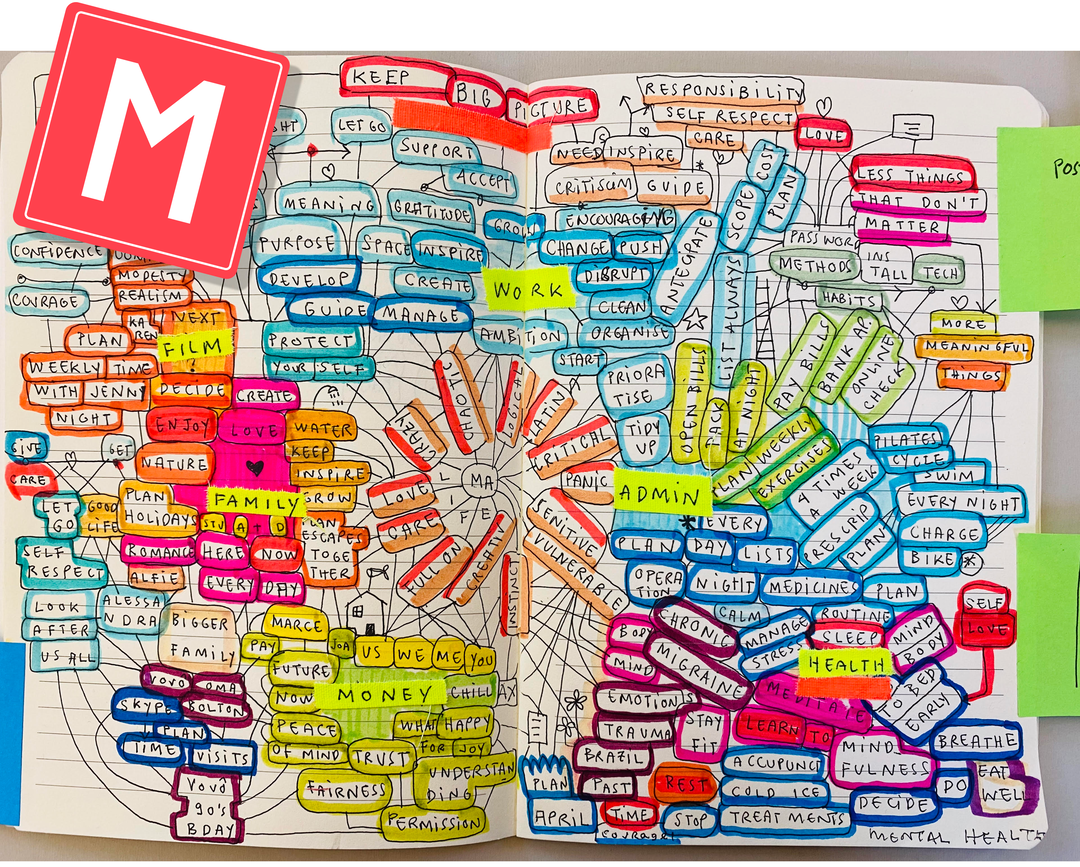 M
KEEP
BIG
PICTURE
RESPONSIBILITY
SELF RESPECT
CARE
LOVE
LET GO
SUPPORT
ACCEPT
NEED INSPIRE
CRITISUM GUIDE
ENCOURAGEING
CHANGE PUSH
DISRUPT
CLEAN
ORGANISE
START
COST
PLAN
SCOPE
ANTEGRATE
LIST ALWAYS
LESS THINGS
THAT DON'T
MATTER
METHODS
INS
TALL
TECH
HABITS
POS
MEANING
GRATITUDE
PURPOSE
SPACE
INSPIRE
DEVELOP
CREATE
GUIDE
MANAGE
WORK
AMBITION
PROTECT
YOUR SELF
CONFIDENCE
COURAGE
MODESTY
REALISM
KA
REN
NEXT
FILM
DECIDE
PLAN
WEEKLY TIME
WITH JENNY
NIGHT
MORE
MEANINGFUL
THINGS
PRIORA
TISE
TIDY
UP
OPEN BILLS
PACK
AT NIGHT
PAY BILLS
BANK BAL
ONLINE
CHECK
PLAN WEEKLY
EXERCISES
4 TIMES
A WEEK
PRESCRIP
PLAN
PILATES
CYCLE
SWIM
EVERY NIGHT
CHARGE
BIKE
GIVE
CARE
GET
LET
GO
GOOD
LIFE
SELF
RESPECT
LOOK
AFTER
US ALL
ALESSA
NDRA
CREATE
ENJOY
LOVE
NATURE
FAMILY
WATER
KEEP
INSPIRE
GROW
PLAN
HOLIDAYS
PLAN
ESCAPES
TOGE
THER
ROMANCE
HERE
NOW
EVERY
DAY
ALFIE
CRAZY
CHAOTIC
LOGICAL
LATIN
CRITICAL
PANIC
LOVE
CARE
FULL ON
CREATIVE
INSTINC
SENITIVE
VULNERABLE
MA
LIFE
ADMIN
EVERY
PLAN
DAY
LISTS
OPERA
TION
NIGHT
MEDICINES
PLAN
CALM
ROUTINE
SLEEP
MANAGE
STRESS
MIND
BODY
SELF
LOVE
HEALTH
BIGGER
FAMILY
VOVO
OMA
SKYPE
BOLTON
PLAN
TIME
VISITS
VOVÓ
90'S
BDAY
MARCE
PAY
JOA
US WE ME YOU
FUTURE
NOW
MONEY
CHILLAX
PEACE
OF MIND
WHAT HAPPY
FOR JOY
TRUST
FAIRNESS
UNDERSTAN
DING
PERMISSION
BODY
MIND
CHRONIC
MIGRAINE
EMOTIONS
TRAUMA
BRAZIL
PAST
TIME
courage
STAY
FIT
REST
STOP
MEDITATE
LEARN TO
MIND
FULNESS
TO BED
EARLY
BREATHE
ACCUPUNC
COLD ICE
TREATMENTS
DECIDE
DO
EAT
WELL
PLAN
APRIL
MENTAL HEALTH